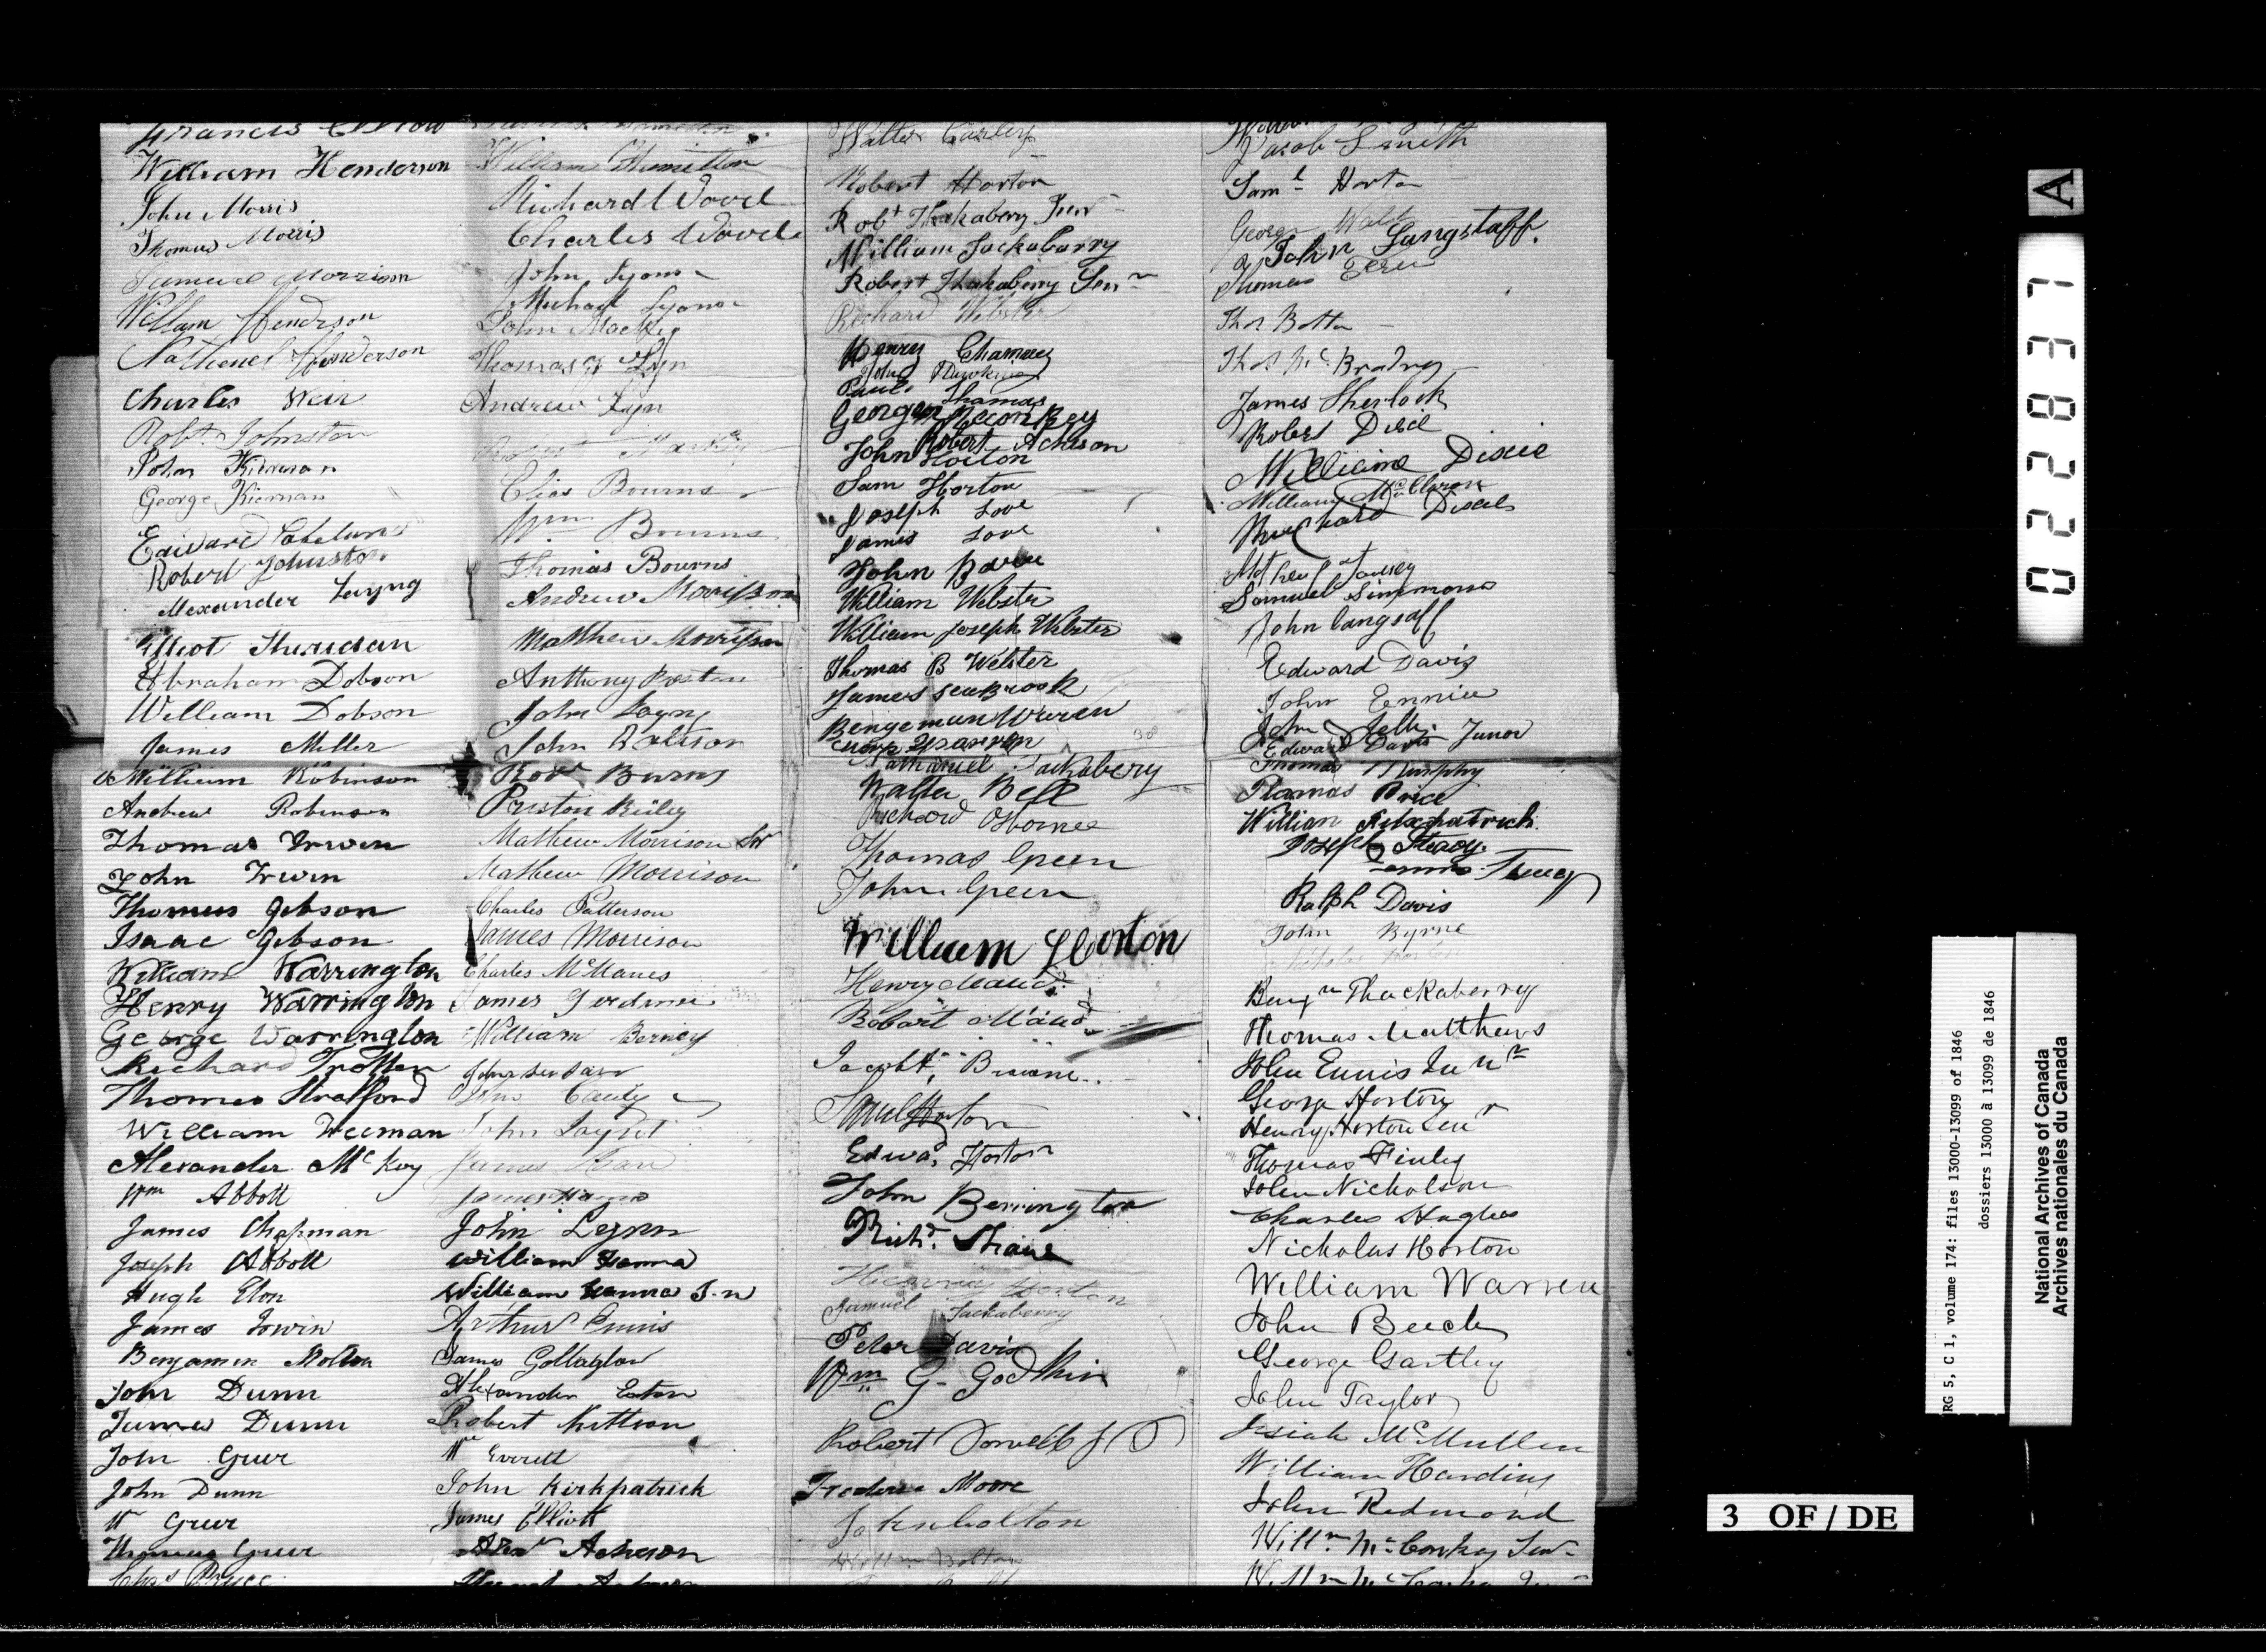 Francis
William Henderson
John Morris
Thomas Morris
Samuel Morrison
William Henderson
Nathaniel Henderson
Charles Weir
Robt. Johnston
John Kiernan
George Kiernan
Edward
Robert Johnston
Alexander Layng
Elliot Sheridan
Abraham Dobson
William Dobson
James Miller
William Robinson
Andrew Robinson
Thomas Irwin
John Irwin
Thomas Gibson
Isaac Gibson
William Warrington
Henry Warrington
George Warrington
Richard Trotter
Thomas Stratford
William Weeman
Alexander McKoy
Wm Abbott
James Chapman
Joseph Abbott
Hugh Elon
James Irwin
Benjamin Molton
John Dunn
James Dunn
John Greer
John Dunn
Wm Greer
Thomas Greer
Chas Bryce
William Hamilton
Richard Wood
Charles Wood
John Lyons
Michael Lyons
John Mackey
Thomas Lyn
Andrew Lyn
Robert Mackey
Elias Bourns
Wm Bourns
Thomas Bourns
Andrew Morrisson
Matthew Morrisson
Anthony Preston
John Layng
John
Robt Burns
Preston Reiley
Mathew Morrison Sr
Mathew Morrison
Charles Patterson
James Morrison
Charles McManes
James
William Berney
John
John Cauly
John
James
James
John Lynn
William Hanna
William Hanna J-n
Arthur Ennis
James Gollaglow
Alexander Eaton
Robert Kittson
Wm Everett
John Kirkpatrick
James Elliott
Alexr Acheson
Walter Carley
Robert Horton
Robt Thackabery Junr
William Jackabarry
Robert Thackabery Senr
Richard Webster
Henry Chamney
John Hawkins
Paul Thomas
George McConkey
Robert Acheson
John Horton
Sam Horton
Joseph Love
James Love
John
William Webster
William Joseph Webster
Thomas B Webster
James Seabrook
Bengeman Wreen
George Warren
30
Nathaniel Jackabery
Walter Bell
Richard Hornee
Thomas Green
John Green
William Horton
Henry
Robart
Jacob
Saml Horton
Edwad Horton
John Berrington
Richd. Shane
Hienrey Horton
Samuel Jackaberry
Peter Davis
Wm G- Godkin
Robert
Frederic Moore
John bolton
Willm Bolton
Jacob Smith
Saml Horton
George Walsh
John Langstaff.
Thomas
Thos Botton
Thos McBradny
James Sherlock
Robert Dixie
William Dixie
William McClaron
Richard Dixie
Mathew Tansey
Samuel Simmons
John Langsaff
Edward Davis
John Ennis
John Kelly
Edward Davis Junor
Thomas Murphy
Thomas Price
William Fitzpatrick
Joseph
Ralph Davis
John Byrne
Nicholas Horton
Benjn Thackaberry
Thomas Matthews
John Ennis Junr
George Horton
Henry Horton Senr
Thomas Finley
John Nicholson
Charles Hughes
Nickolas Horton
William Warren
John Beech
George Gartley
John Taylor
Josiah McMullen
William Harding
John Redmond
Willm McConkey Senr
Willm McConkey Junr
A
022837
RG 5, C 1, volume 174: files 13000-13099 of 1846
dossiers 13000 à 13099 de 1846
National Archives of Canada
Archives nationales du Canada
3 OF / DE